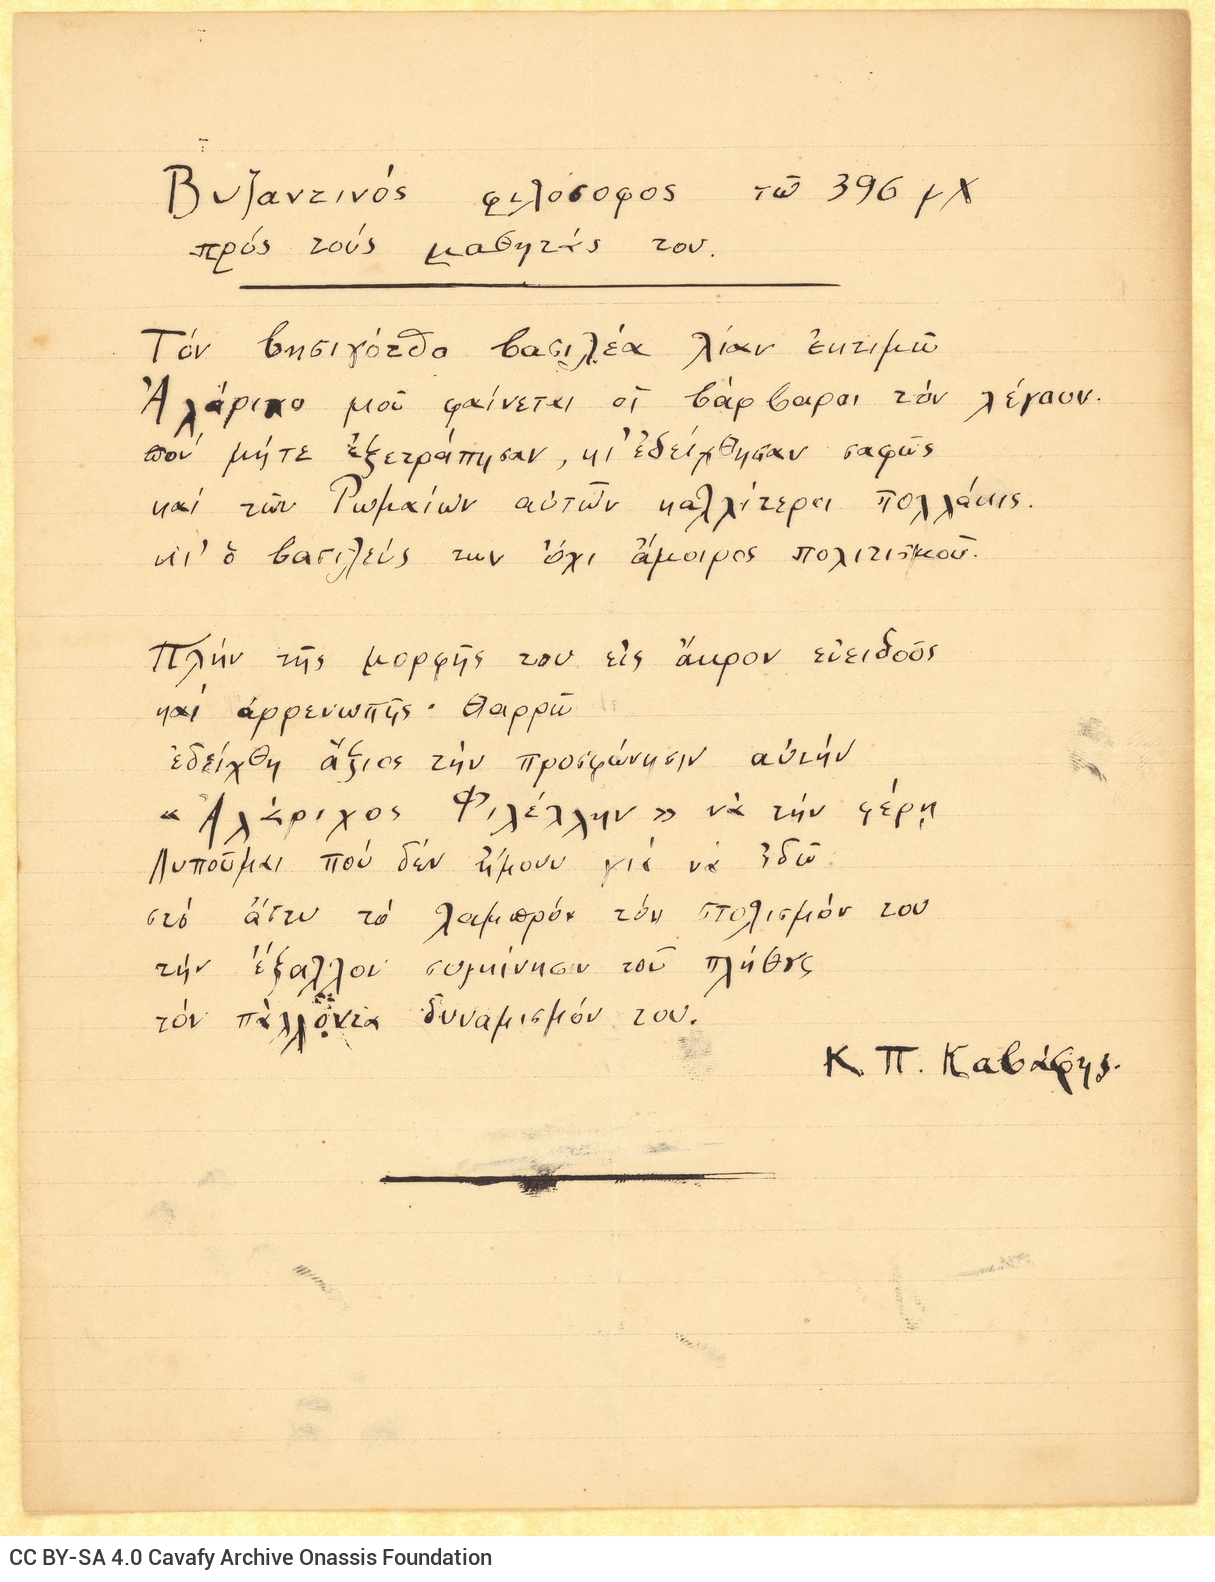 Βυζαντινός φιλόσοφος τῶ 396 μΧ
πρός τούς μαθητάς του.
Τόν βησιγότθο βασιλέα λίαν ἐκτιμῶ
Ἀλάριχο μοῦ φαίνεται οἱ βάρβαροι τόν λέγουν.
πού μήτε ἐξετράπησαν, κι' ἐδείχθησαν σαφῶς
καί τῶν Ρωμαίων αὐτῶν καλλίτεροι πολλάκις.
κι' ὁ βασιλεύς των ὄχι ἄμοιρος πολιτισμοῦ.
Πλήν τῆς μορφῆς του εἰς ἄκρον εὐειδοῦς
καί ἀρρενωπῆς· θαρρῶ
ἐδείχθη ἄξιος τήν προσφώνησιν αὐτήν
«Ἀλάριχος Φιλέλλην» νὰ τήν φέρῃ
Λυποῦμαι πού δέν ἤμουν γιά νά ἰδῶ
στό ἄστυ τό λαμπρόν τόν στολισμόν του
τήν ἔξαλλον συγκίνησιν τοῦ πλήθους
τόν πάλλοντα δυναμισμόν του.
Κ. Π. Καβάφης.
CC BY-SA 4.0 Cavafy Archive Onassis Foundation